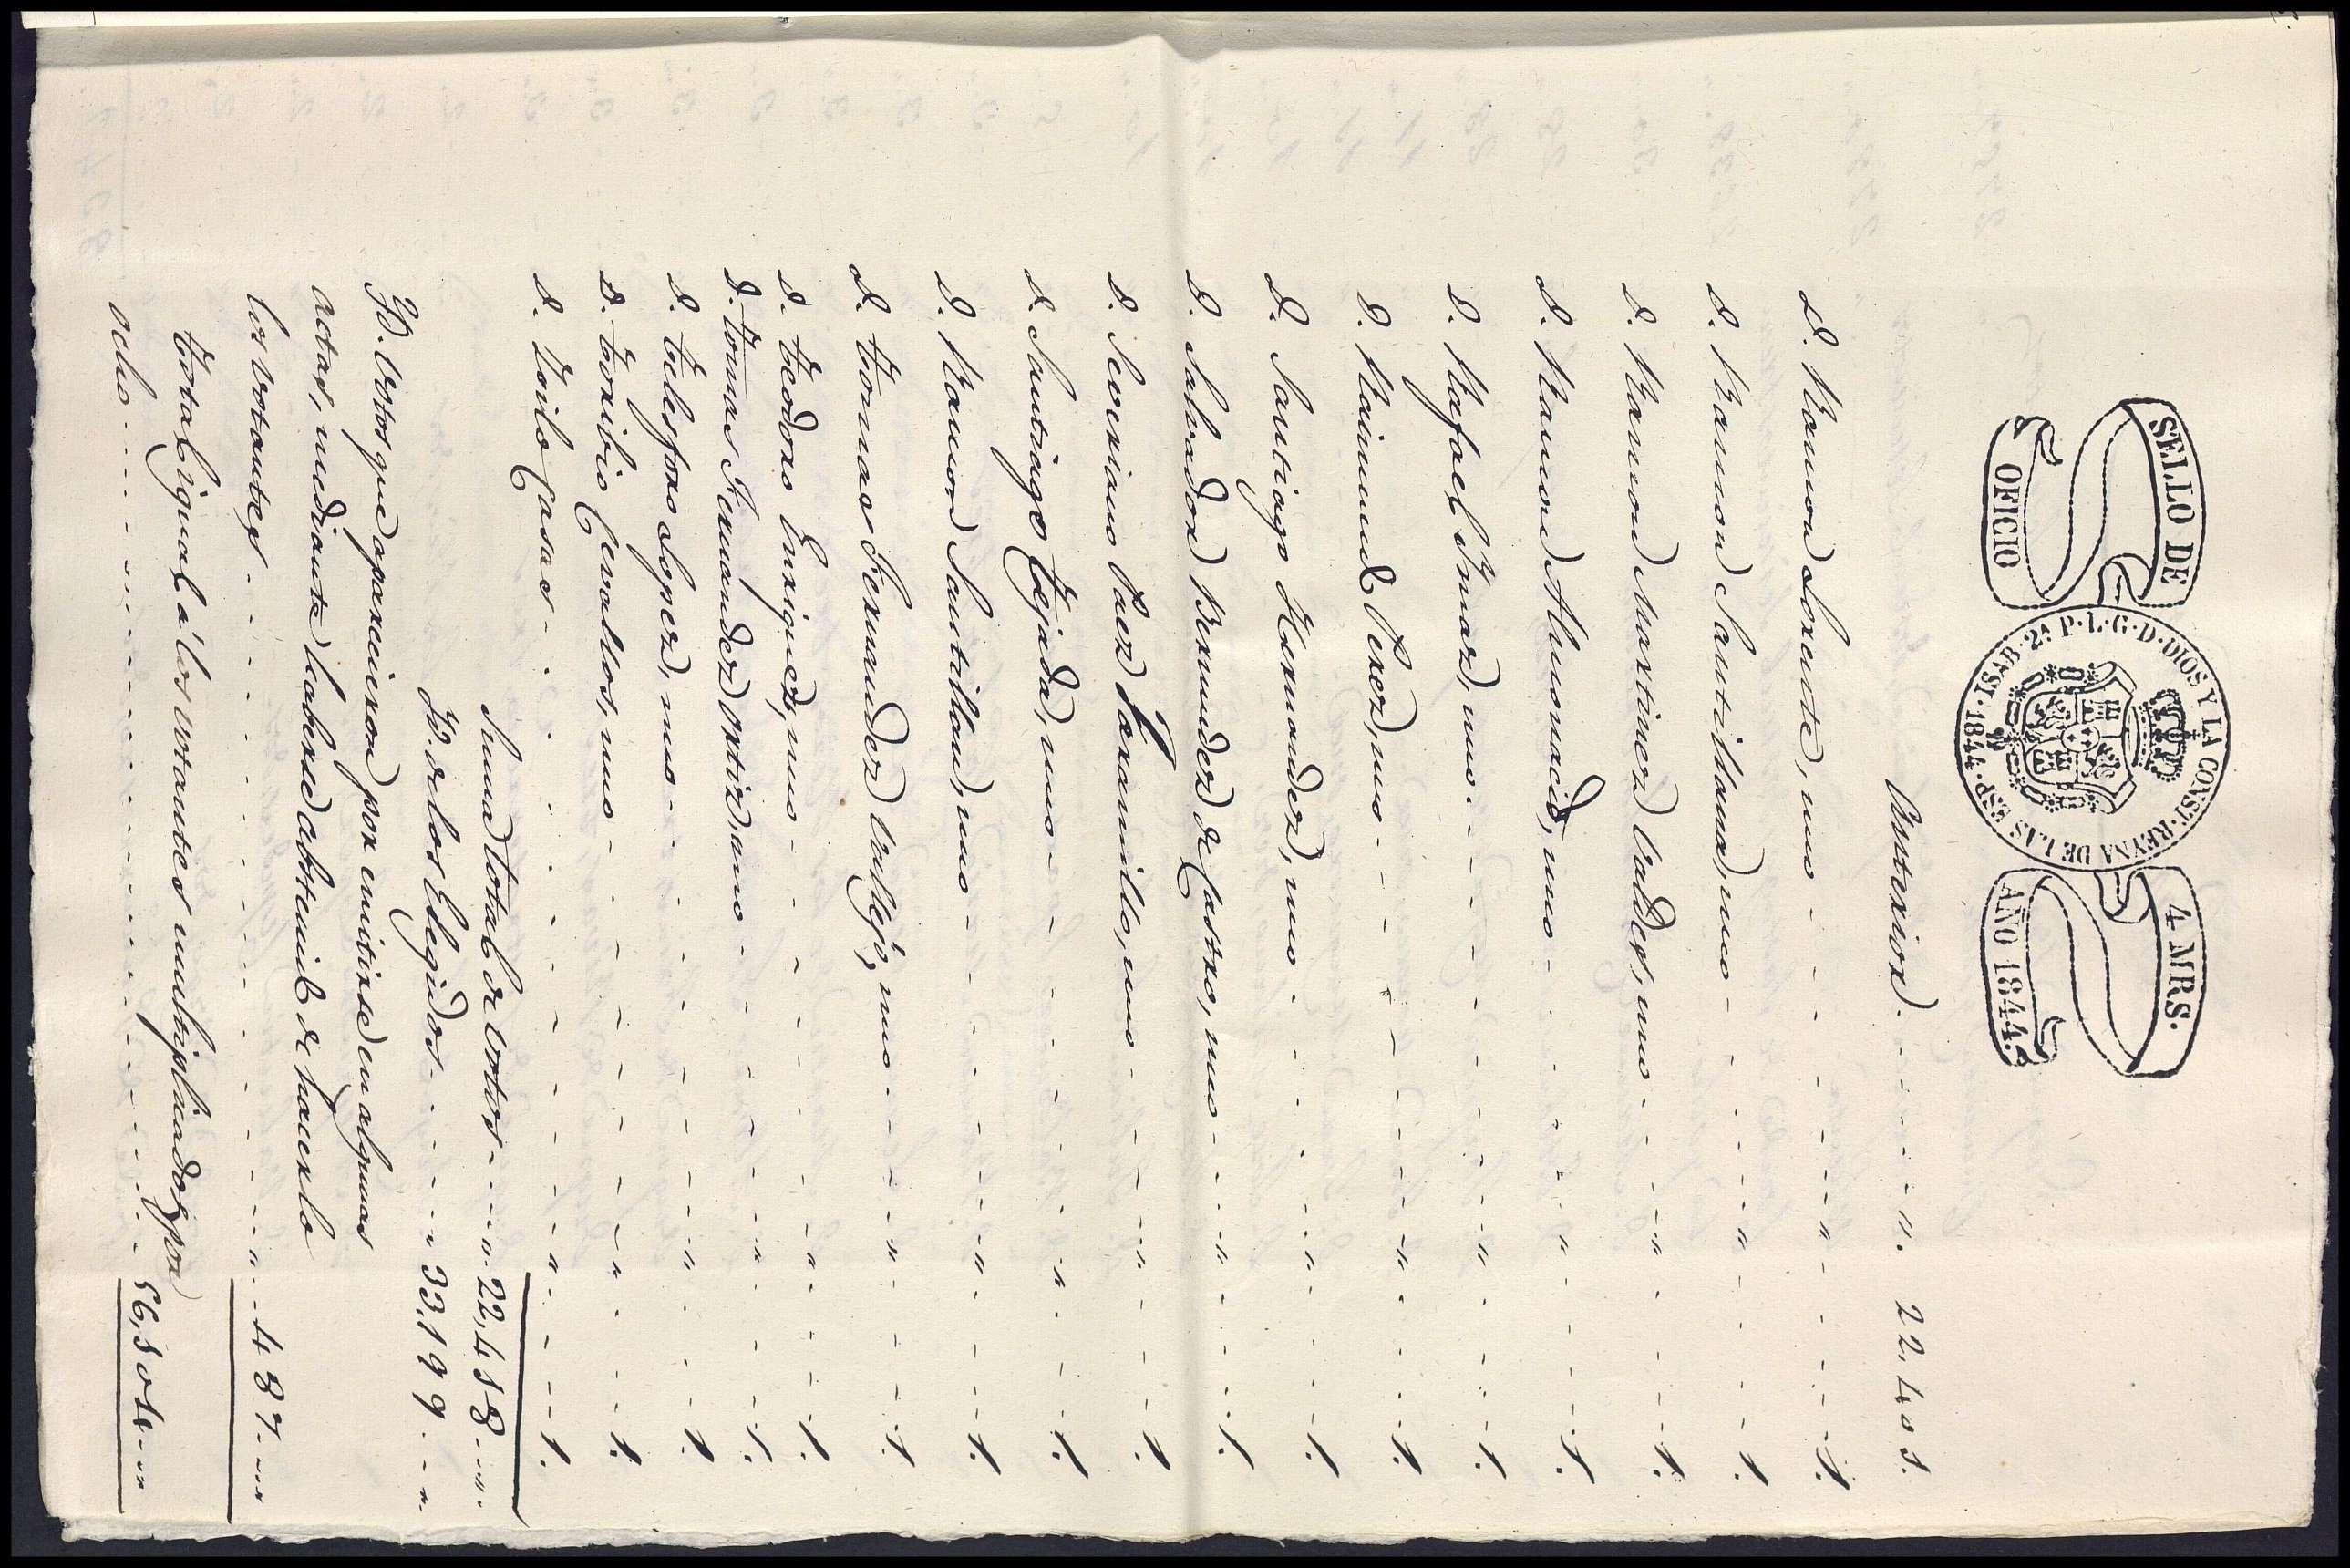 SELLO DE OFICIO
ISAB. 2ª P. L. G. D. DIOS Y LA CONST. REYNA DE LAS ESP. 1844.
4 MRS. AÑO 1844.
Anterior 22,40
D. Ramon Lorente, uno 1.
D. Ramon Santillana, uno 1.
D. Ramon Martinez Valdes, uno 1.
D. Ramon Almonacid, uno 1.
D. Rafael Imaz, uno 1.
D. Raimund Perez, uno 1.
D. Santiago Hernandez, uno 1.
D. Salvador Bermudez de Castro, uno 1.
D. Severiano Paez Xaramillo, uno 1.
D. Santiago Tejada, uno 1.
D. Ramon Santillan, uno 1.
D. Tomas Fernandez Vallejo, uno 1.
D. Teodoro Enriquez, uno 1.
D. Tomas Fernandez Ortiz, uno 1.
D. Telesforo Lopez, uno 1.
D. Toribio Cevallos, uno 1.
D. Zoilo Casas 1.
Suma total de votos 22,418
Id. de los Elegidos 33,199
Id. Votos que aparecieron por emitirse en algunas
actas, mediante haberse abstenido de hacerlo
los votantes 487
Total igual á los votantes multiplicados por
ocho 56,104